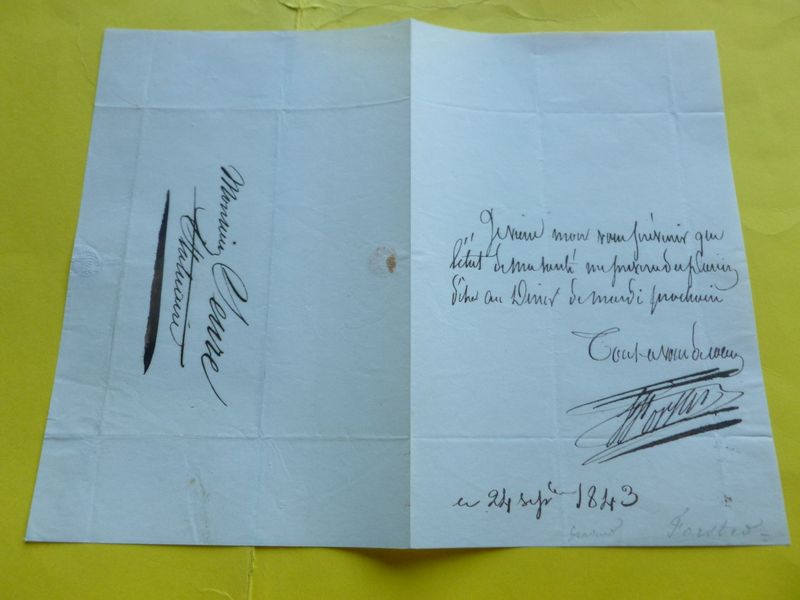 Monsieur Seurre
Statuaire
Je viens mon vous prévenir que
l'état de ma santé me prive du plaisir
d'être au Diner de mardi prochain
Tout a vous de cœur
Forster
ce 24 sepbre 1843
graveur Forster =